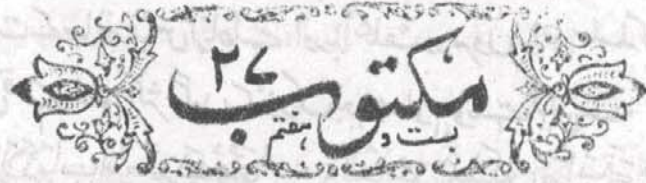 مکتوب ۲۷
بست و ہفتم